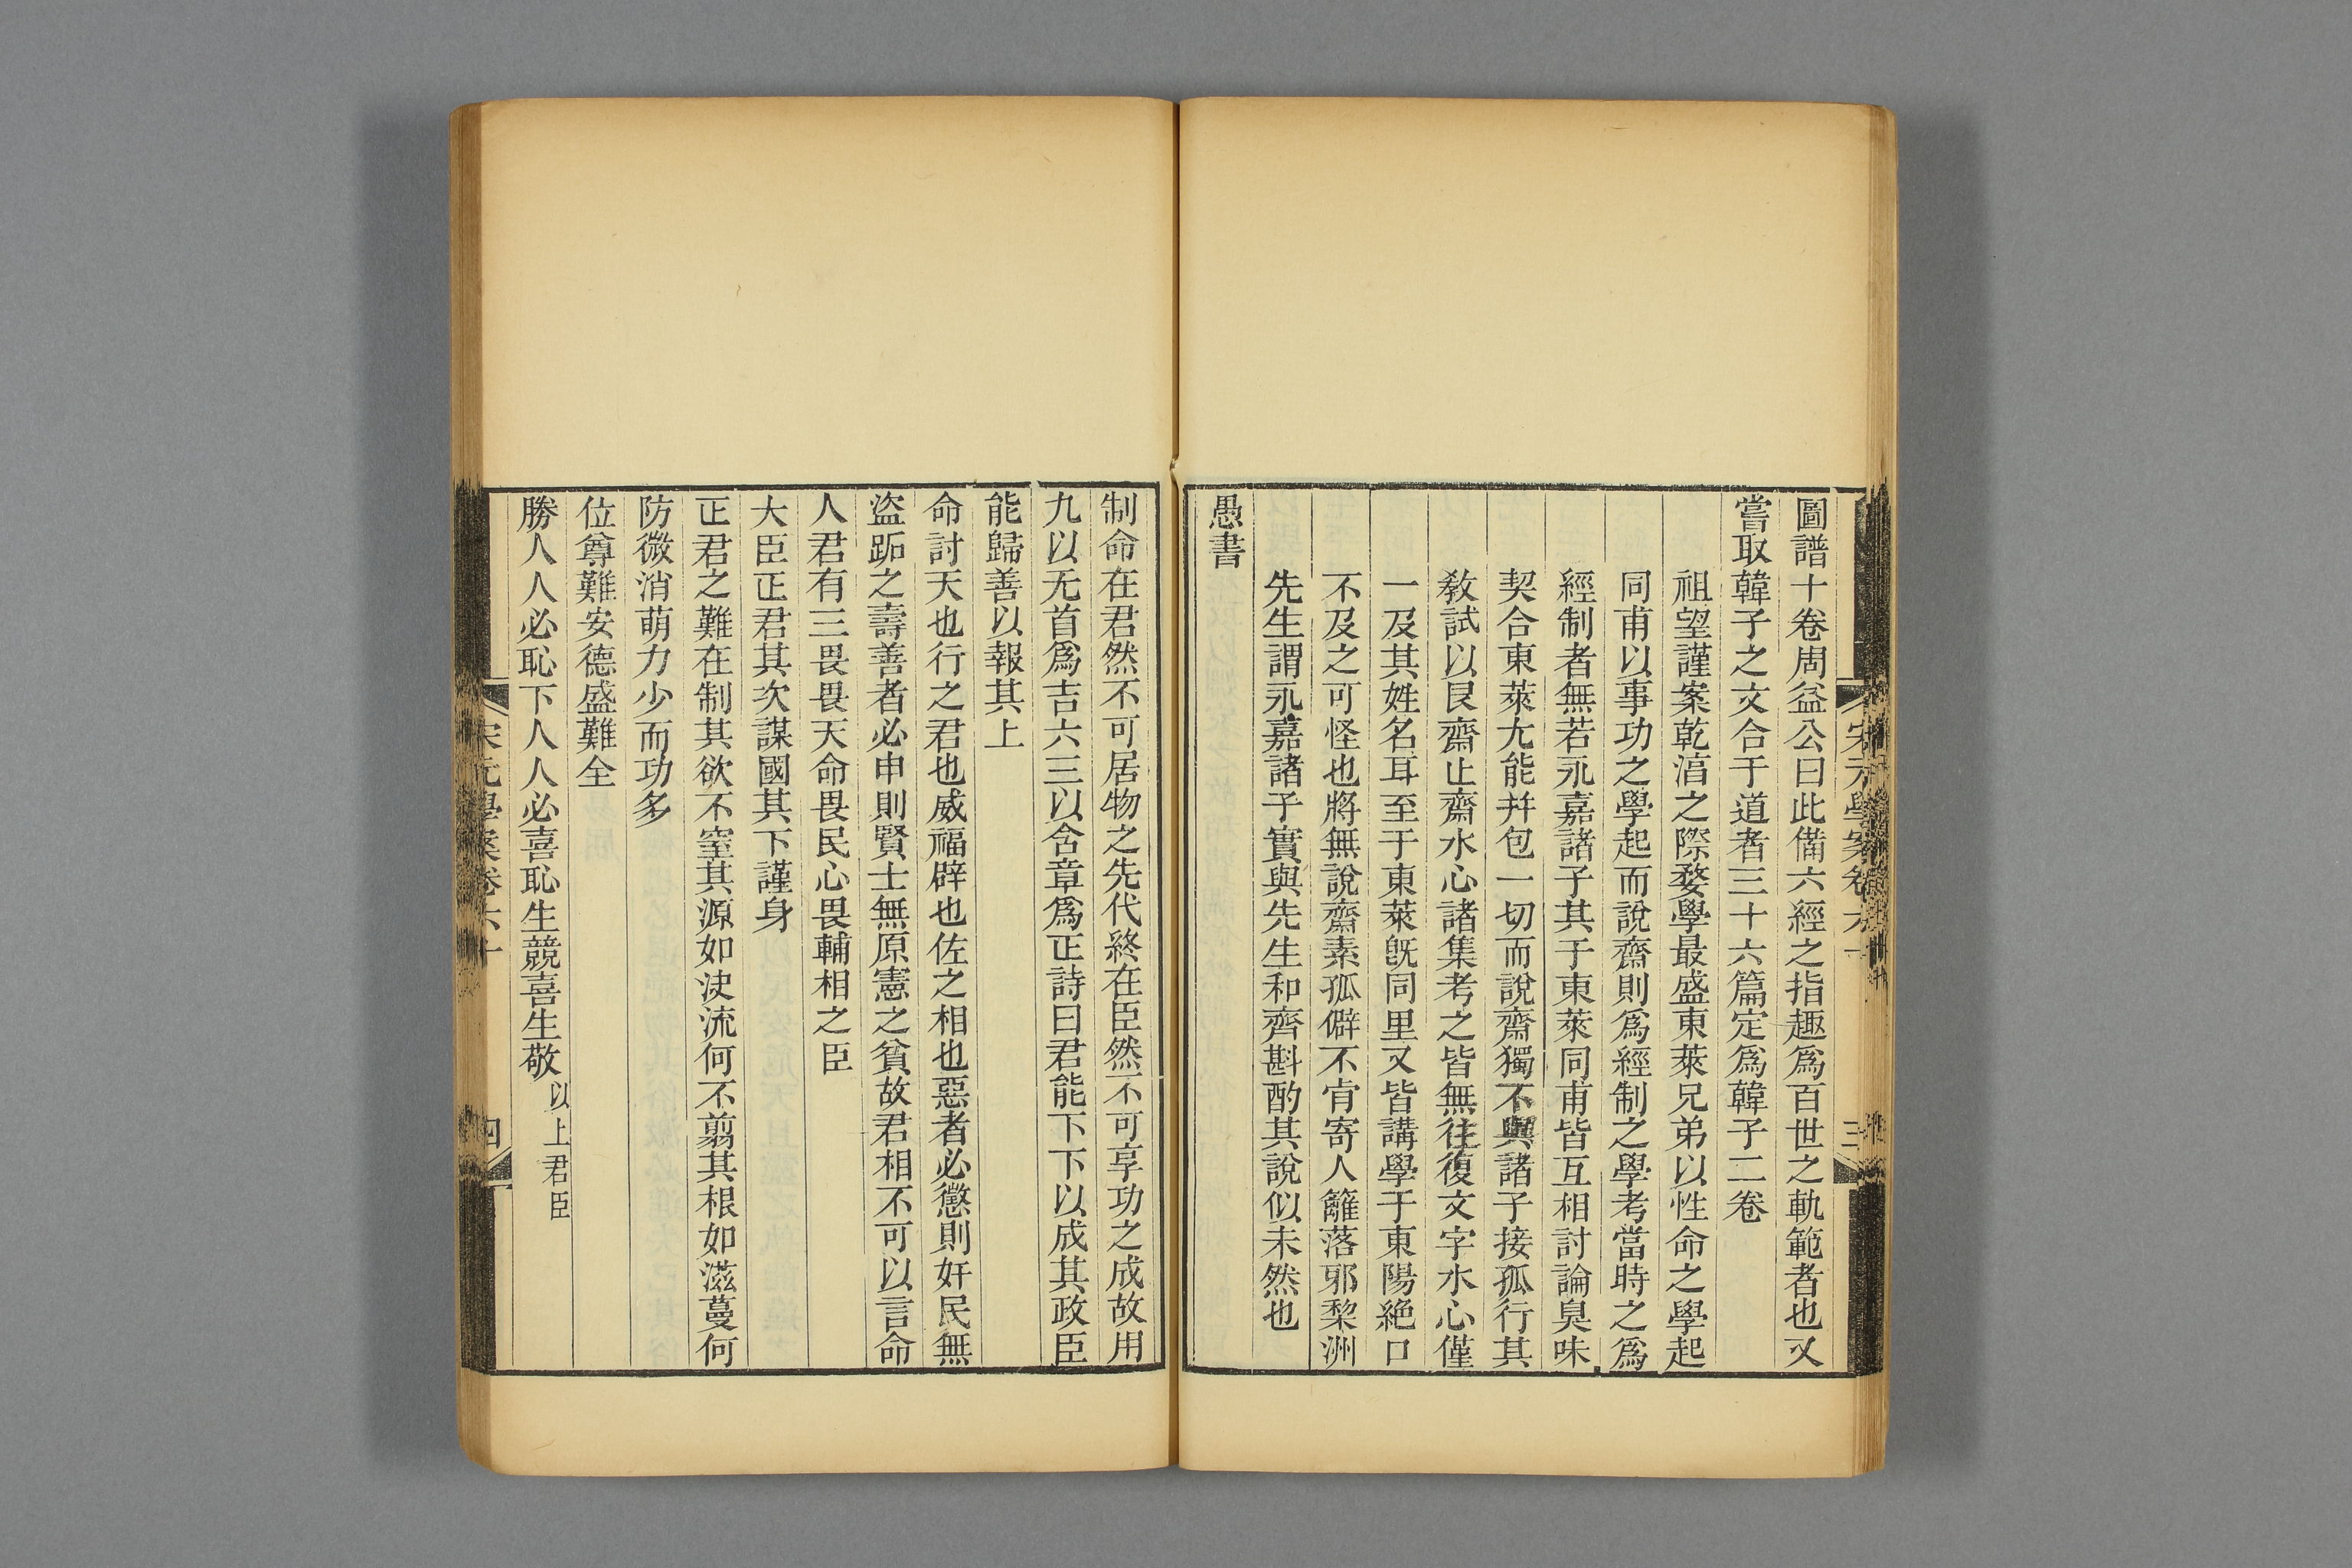 圖譜十卷周益公曰此備六經之指趣爲百世之軌範者也又
嘗取韓子之文合于道者三十六篇定爲韓子二卷
祖望謹案乾淳之際婺學最盛東萊兄弟以性命之學起
同甫以事功之學起而說齋則爲經制之學考當時之爲
經制者無若永嘉諸子其于東萊同甫皆互相討論臭味
契合東萊尤能幷包一切而說齋獨不與諸子接孤行其
敎試以艮齋止齋水心諸集考之皆無往復文字水心僅
一及其姓名耳至于東萊旣同里又皆講學于東陽絶口
不及之可怪也將無說齋素孤僻不肯寄人籬落邪黎洲
先生謂永嘉諸子實與先生和齊斟酌其說似未然也
愚書
宋元學案卷六十
三
制命在君然不可居物之先代終在臣然不可享功之成故用
九以无首爲吉六三以含章爲正詩曰君能下下以成其政臣
能歸善以報其上
命討天也行之君也威福辟也佐之相也惡者必懲則奸民無
盜跖之壽善者必申則賢士無原憲之貧故君相不可以言命
人君有三畏畏天命畏民心畏輔相之臣
大臣正君其次謀國其下謹身
正君之難在制其欲不窒其源如決流何不翦其根如滋蔓何
防微消萌力少而功多
位尊難安德盛難全
勝人人必恥下人人必喜恥生競喜生敬以上君臣
宋元學案卷六十
四